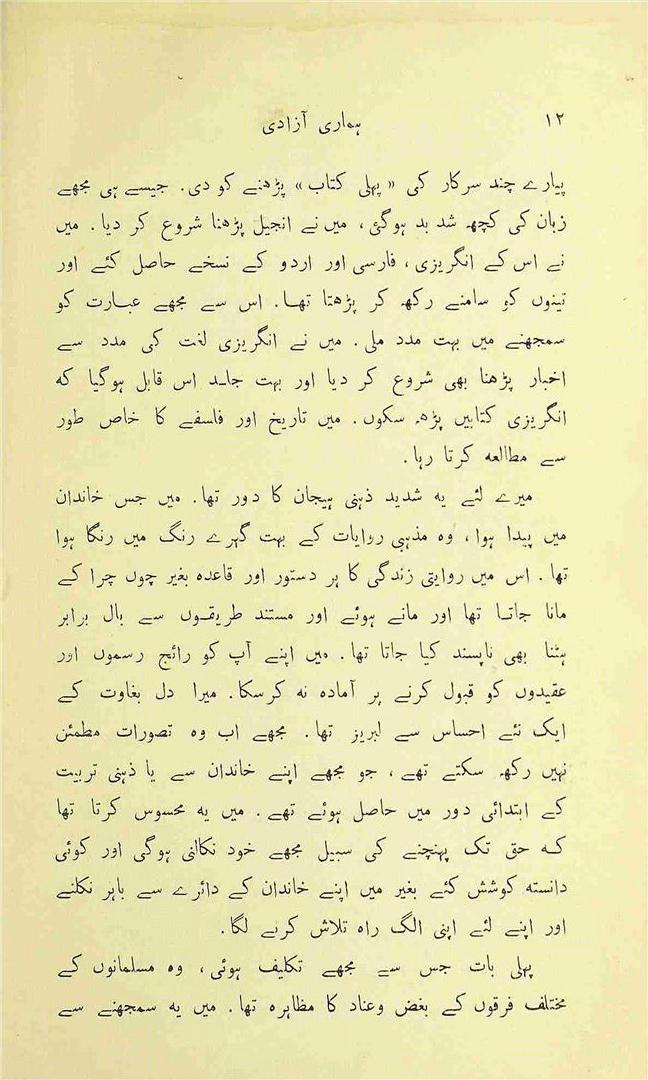 ۱۲ ہماری آزادی
پیارے چند سرکار کی « پہلی کتاب » پڑھنے کو دی. جیسے ہی مجھے
زبان کی کچھ شد بد ہوگئی ، میں نے انجیل پڑھنا شروع کر دیا. میں
نے اس کے انگریزی ، فارسی اور اردو کے نسخے حاصل کئے اور
تینوں کو سامنے رکھ کر پڑھتا تھا. اس سے مجھے عبارت کو
سمجھنے میں بہت مدد ملی. میں نے انگریزی لغت کی مدد سے
اخبار پڑھنا بھی شروع کر دیا اور بہت جلد اس قابل ہوگیا کہ
انگریزی کتابیں پڑھ سکوں. میں تاریخ اور فلسفے کا خاص طور
سے مطالعہ کرتا رہا.
میرے لئے یہ شدید ذہنی ہیجان کا دور تھا. میں جس خاندان
میں پیدا ہوا ، وہ مذہبی روایات کے بہت گہرے رنگ میں رنگا ہوا
تھا. اس میں روایتی زندگی کا ہر دستور اور قاعدہ بغیر چوں چرا کے
مانا جاتا تھا اور مانے ہوئے اور مستند طریقوں سے بال برابر
ہٹنا بھی ناپسند کیا جاتا تھا. میں اپنے آپ کو رائج رسموں اور
عقیدوں کو قبول کرنے پر آمادہ نہ کرسکا. میرا دل بغاوت کے
ایک نئے احساس سے لبریز تھا. مجھے اب وہ تصورات مطمئن
نہیں رکھ سکتے تھے ، جو مجھے اپنے خاندان سے یا ذہنی تربیت
کے ابتدائی دور میں حاصل ہوئے تھے. میں یہ محسوس کرتا تھا
کہ حق تک پہنچنے کی سبیل مجھے خود نکالنی ہوگی اور کوئی
دانستہ کوشش کئے بغیر میں اپنے خاندان کے دائرے سے باہر نکلنے
اور اپنے لئے اپنی الگ راہ تلاش کرنے لگا.
پہلی بات جس سے مجھے تکلیف ہوئی ، وہ مسلمانوں کے
مختلف فرقوں کے بغض وعناد کا مظاہرہ تھا. میں یہ سمجھنے سے